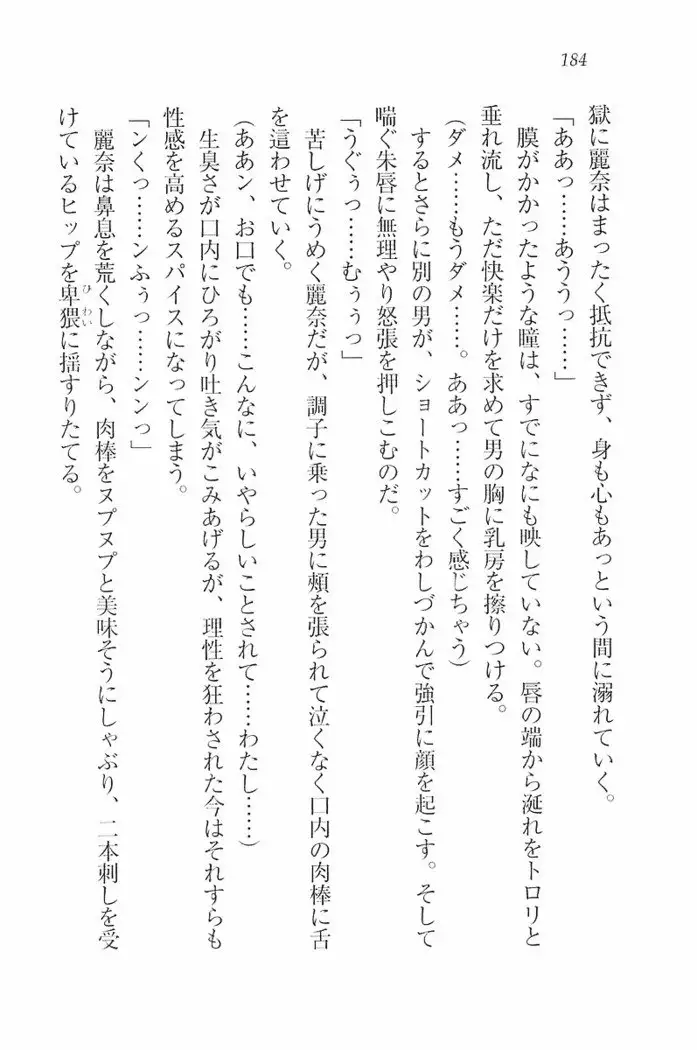 184
獄に麗奈はまったく抵抗できず、身も心もあっという間に溺れていく。
「ああっ……あううっ……」
膜がかかったような瞳は、すでになにも映していない。唇の端から涎れをトロリと
垂れ流し、ただ快楽だけを求めて男の胸に乳房を擦りつける。
(ダメ……もうダメ……。ああっ……すごく感じちゃう)
するとさらに別の男が、ショートカットをわしづかんで強引に顔を起こす。そして
喘ぐ朱唇に無理やり怒張を押しこむのだ。
「うぐぅっ……むぅぅっ」
苦しげにうめく麗奈だが、調子に乗った男に頰を張られて泣くなく口内の肉棒に舌
を這わせていく。
(ああン、お口でも……こんなに、いやらしいことされて……わたし……)
生臭さが口内にひろがり吐き気がこみあげるが、理性を狂わされた今はそれすらも
性感を高めるスパイスになってしまう。
「ンくっ……ンふぅっ……ンンっ」
麗奈は鼻息を荒くしながら、肉棒をヌプヌプと美味そうにしゃぶり、二本刺しを受
けているヒップを卑猥ひわいに揺すりたてる。